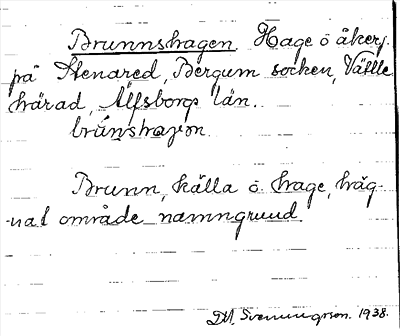 Brunnshagen. Hage ö åkerj.
på Stenared, Bergum socken, Vättle
härad, Älfsborgs län.
brúnshagen
Brunn, källa ö hage, häg-
nat område namngrund.
D.M. Svenningson. 1938.